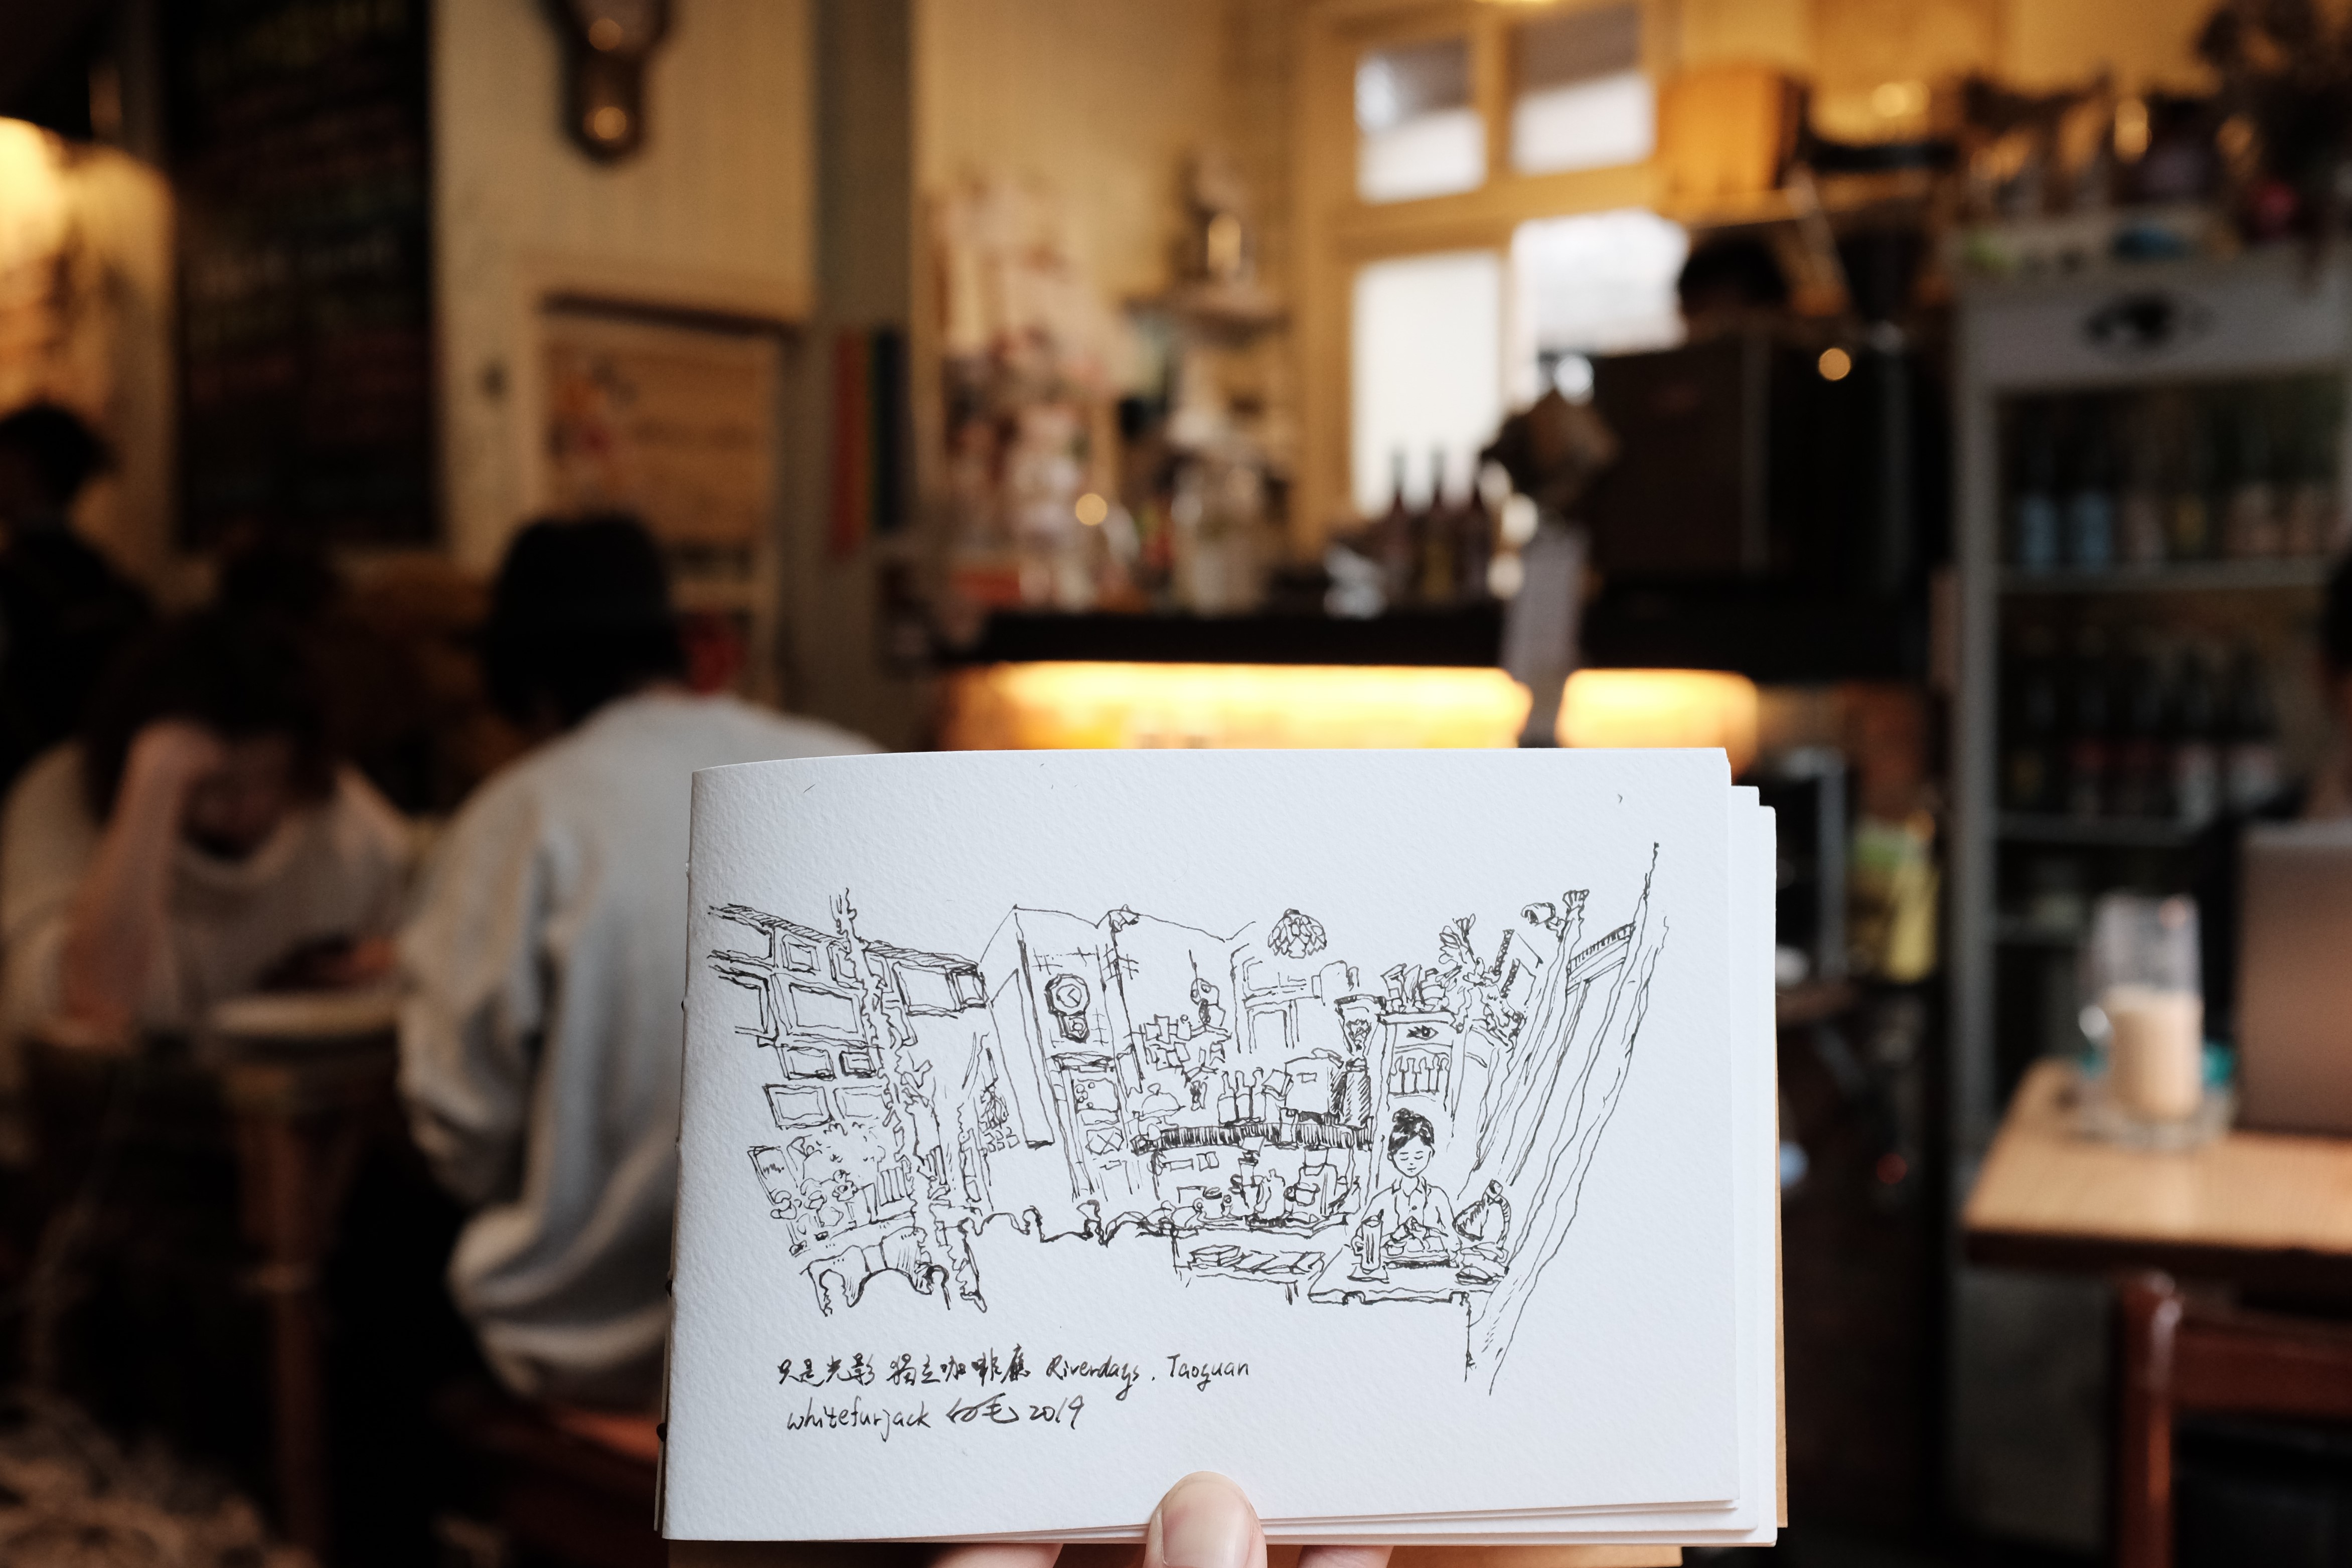 只是光影 獨立咖啡廳 Riverdays . Taoyuan
whitefurjack 白毛 2019